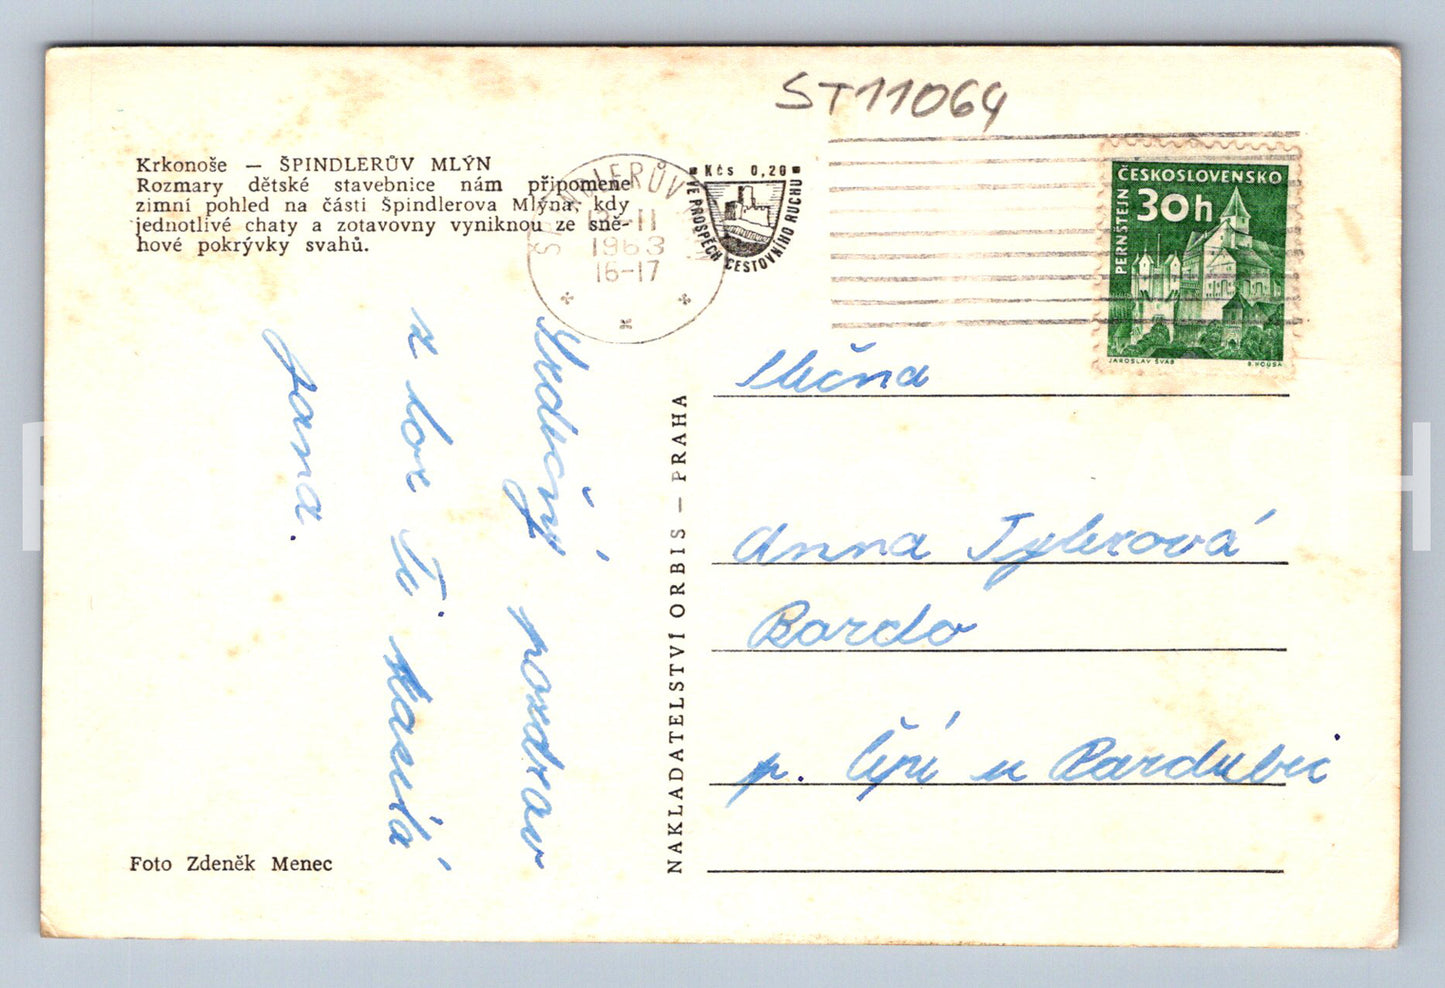 ST11064
Krkonoše — ŠPINDLERŮV MLÝN
Rozmary dětské stavebnice nám připomene
zimní pohled na části Špindlerova Mlýna, kdy
jednotlivé chaty a zotavovny vyniknou ze sně-
hové pokrývky svahů.
ŠPINDLERŮV
-11
1963
16-17
Kčs 0,20
VE PROSPĚCH CESTOVNÍHO RUCHU
ČESKOSLOVENSKO
30h
PERNŠTEJN
JAROSLAV ŠVÁB
Srdečný pozdrav
z hor Ti zasílá
Jana.
NAKLADATELSTVÍ ORBIS — PRAHA
Slečna
Anna Tylerová
Bordo
p. Čepí u Pardubic
Foto Zdeněk Menec